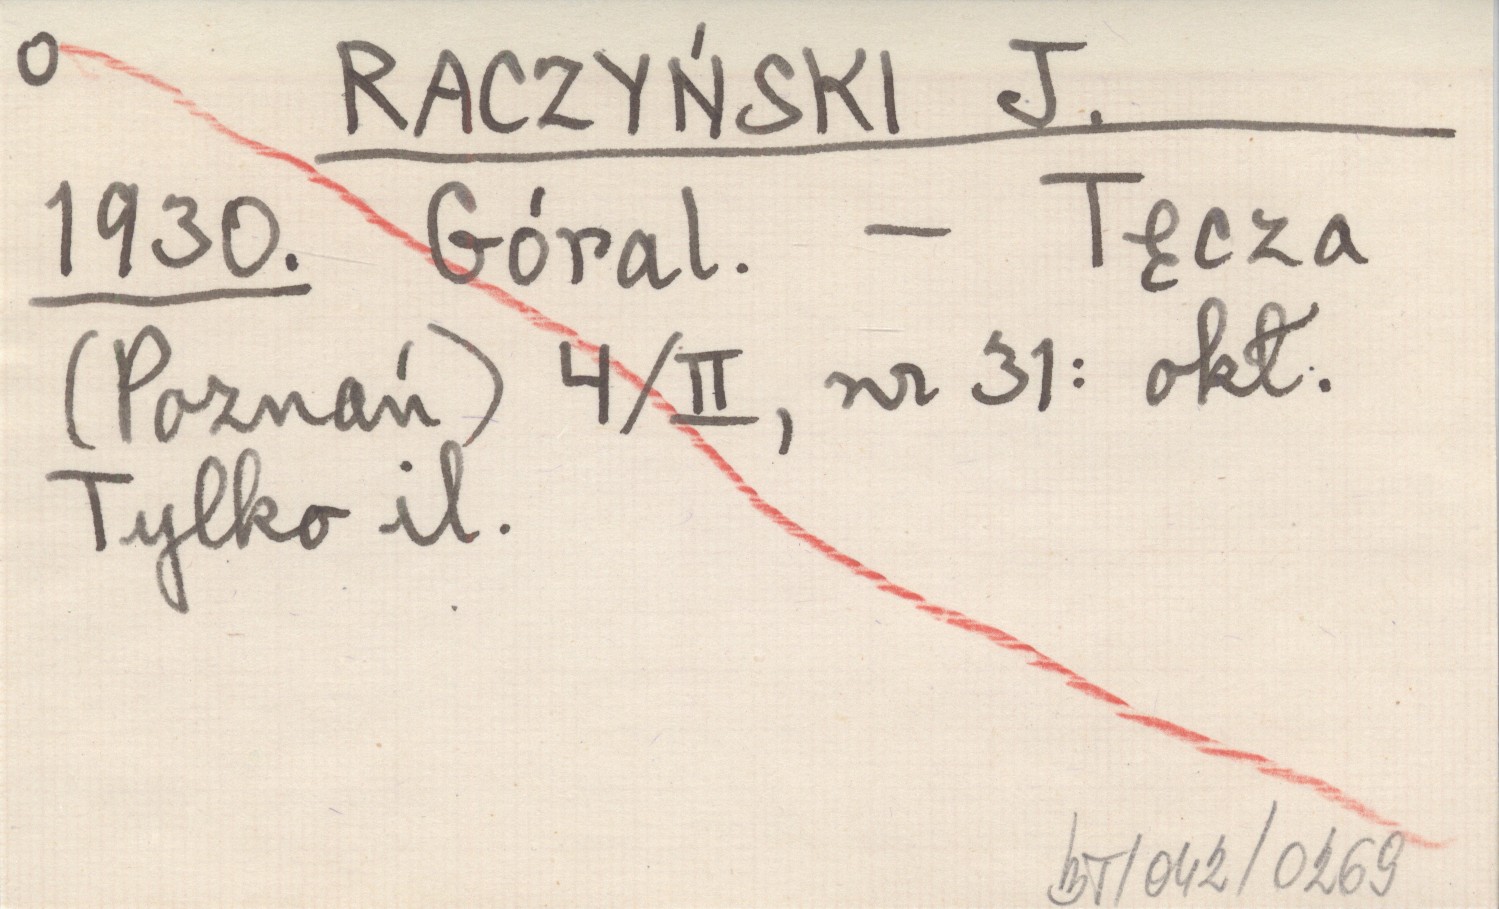 O RACZYŃSKI J.
1930. Góral. – Tęcza
(Poznań) 4/II, nr 31: okł.
Tylko il.
BT/042/0269